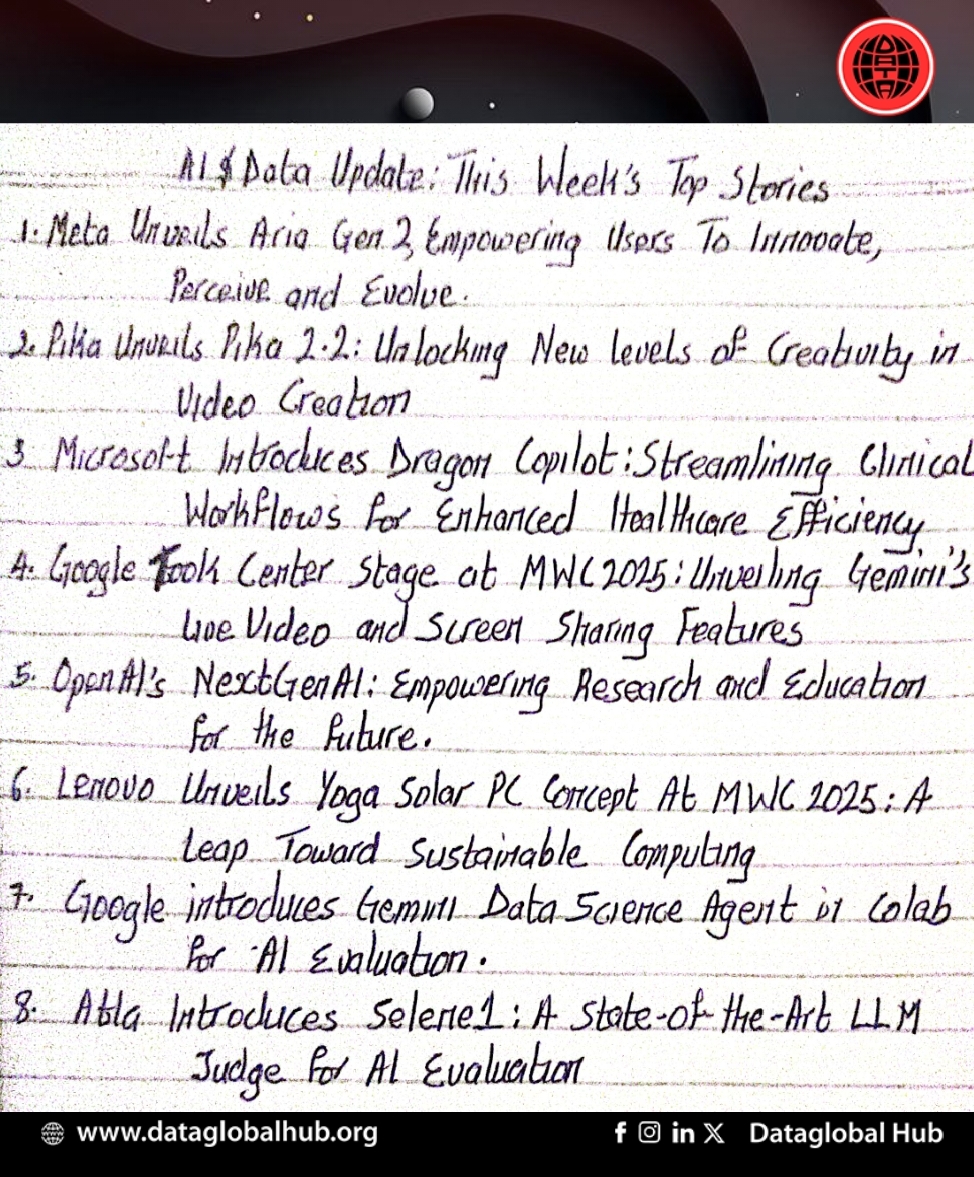 DATA
AI & Data Update: This Week's Top Stories
1. Meta Unveils Aria Gen 2, Empowering Users To Innovate,
Perceive and Evolve.
2. Pika Unveils Pika 2.2: Unlocking New Levels of Creativity in
Video Creation
3 Microsoft Introduces Dragon Copilot: Streamlining Clinical
Workflows for Enhanced Healthcare Efficiency
4. Google Took Center Stage at MWC 2025: Unveiling Gemini's
Live Video and Screen Sharing Features
5. OpenAI's NextGenAI: Empowering Research and Education
for the future.
6. Lenovo Unveils Yoga Solar PC Concept At MWC 2025: A
Leap Toward Sustainable Computing
7. Google introduces Gemini Data Science Agent in Colab
for AI Evaluation.
8. Atla Introduces Selene1: A State-of-the-Art LLM
Judge for AI Evaluation
www.dataglobalhub.org
Dataglobal Hub